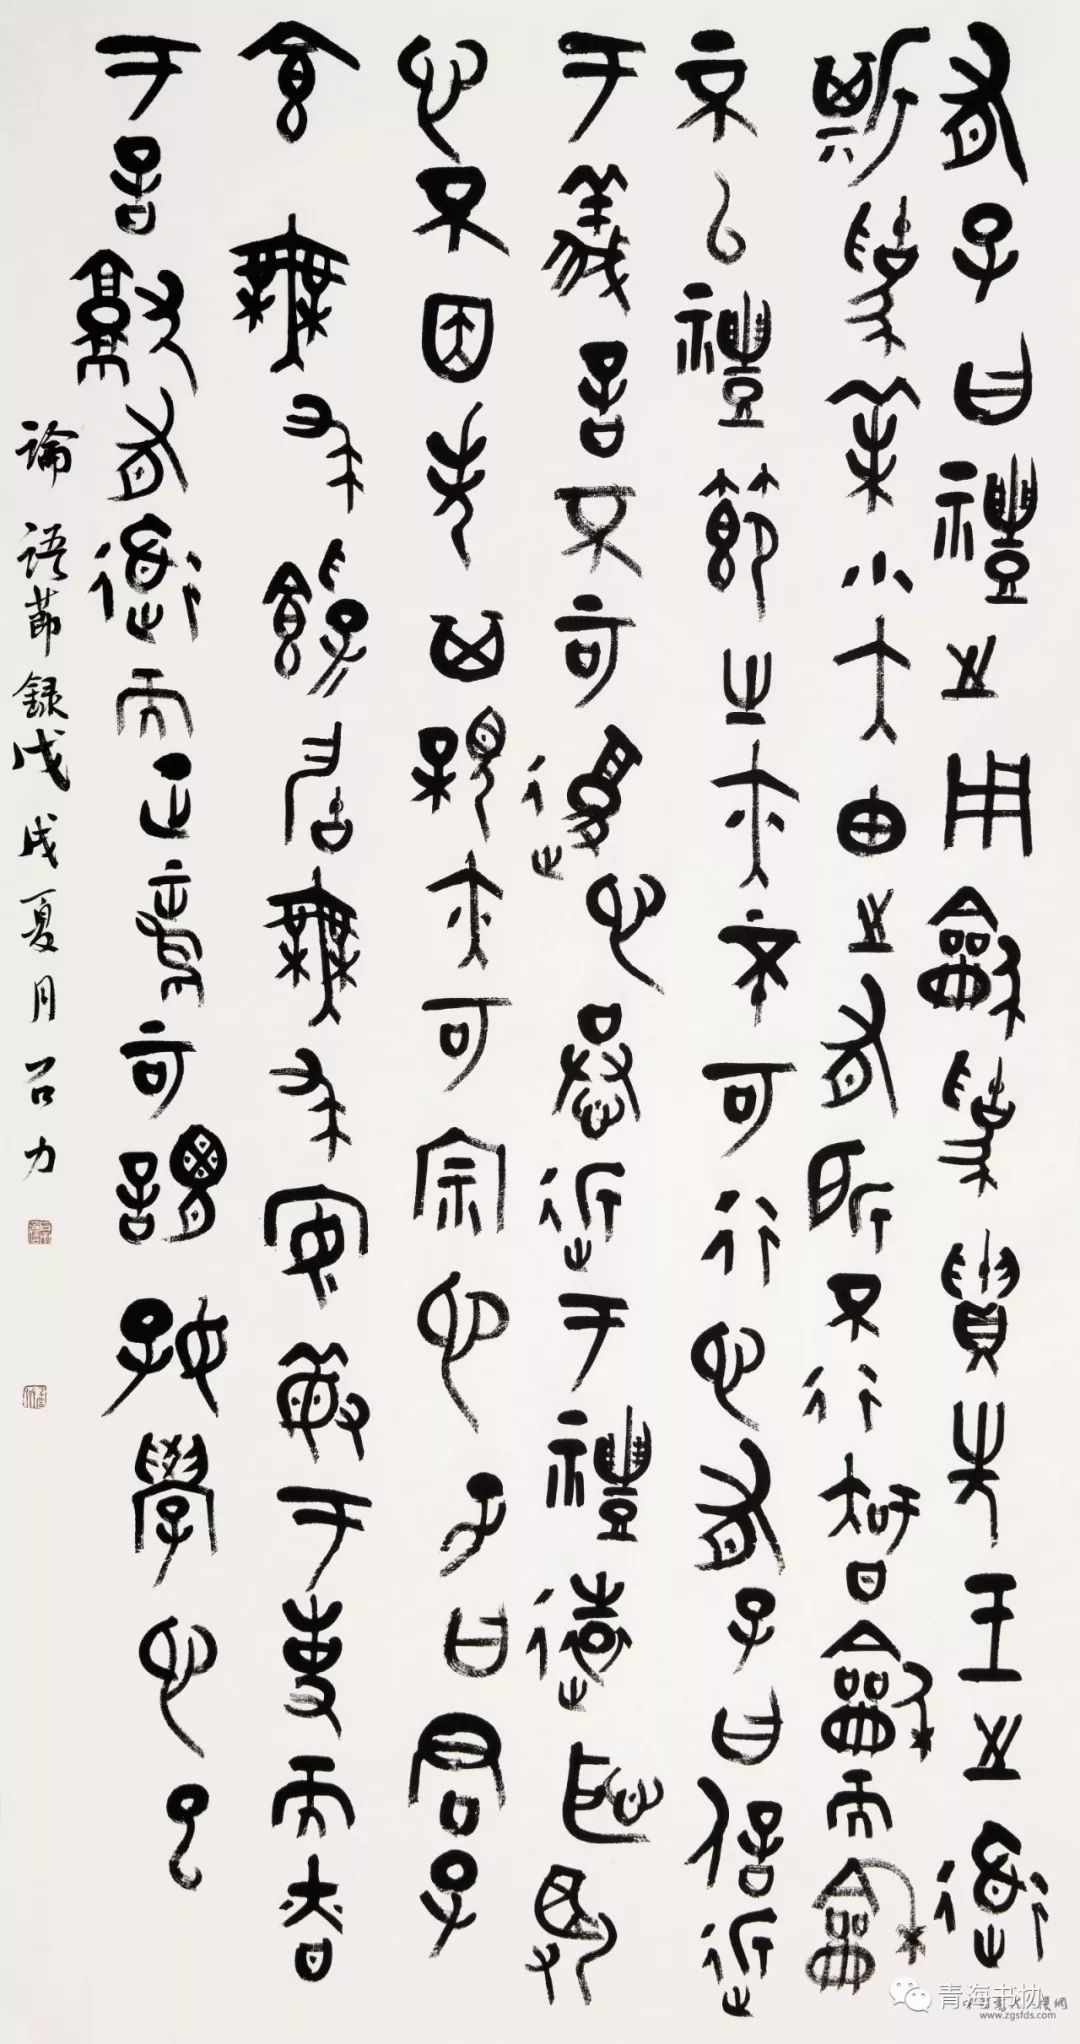 有子曰禮之用龢為貴先王之道
斯為美小大由之有所不行智龢而龢
不以禮節之亦不可行也有子曰信近
于義言不可復也恭近于禮遠恥辱
也不因失其親亦可宗也子曰君子
食無求飽居無求安敏于事而慎
于言就有道而正焉可謂好學也已
論語節錄戊戌夏月力
青海书协
www.zgsfds.com